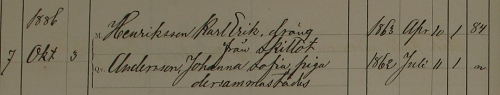 1886
Henriksson Karl Erik, dräng 1863 Apr. 10 1 84
från Skillot
7 Okt 3 Andersson, Johanna Sofia, piga 1862 Juli 11 1 n
dersammastädes